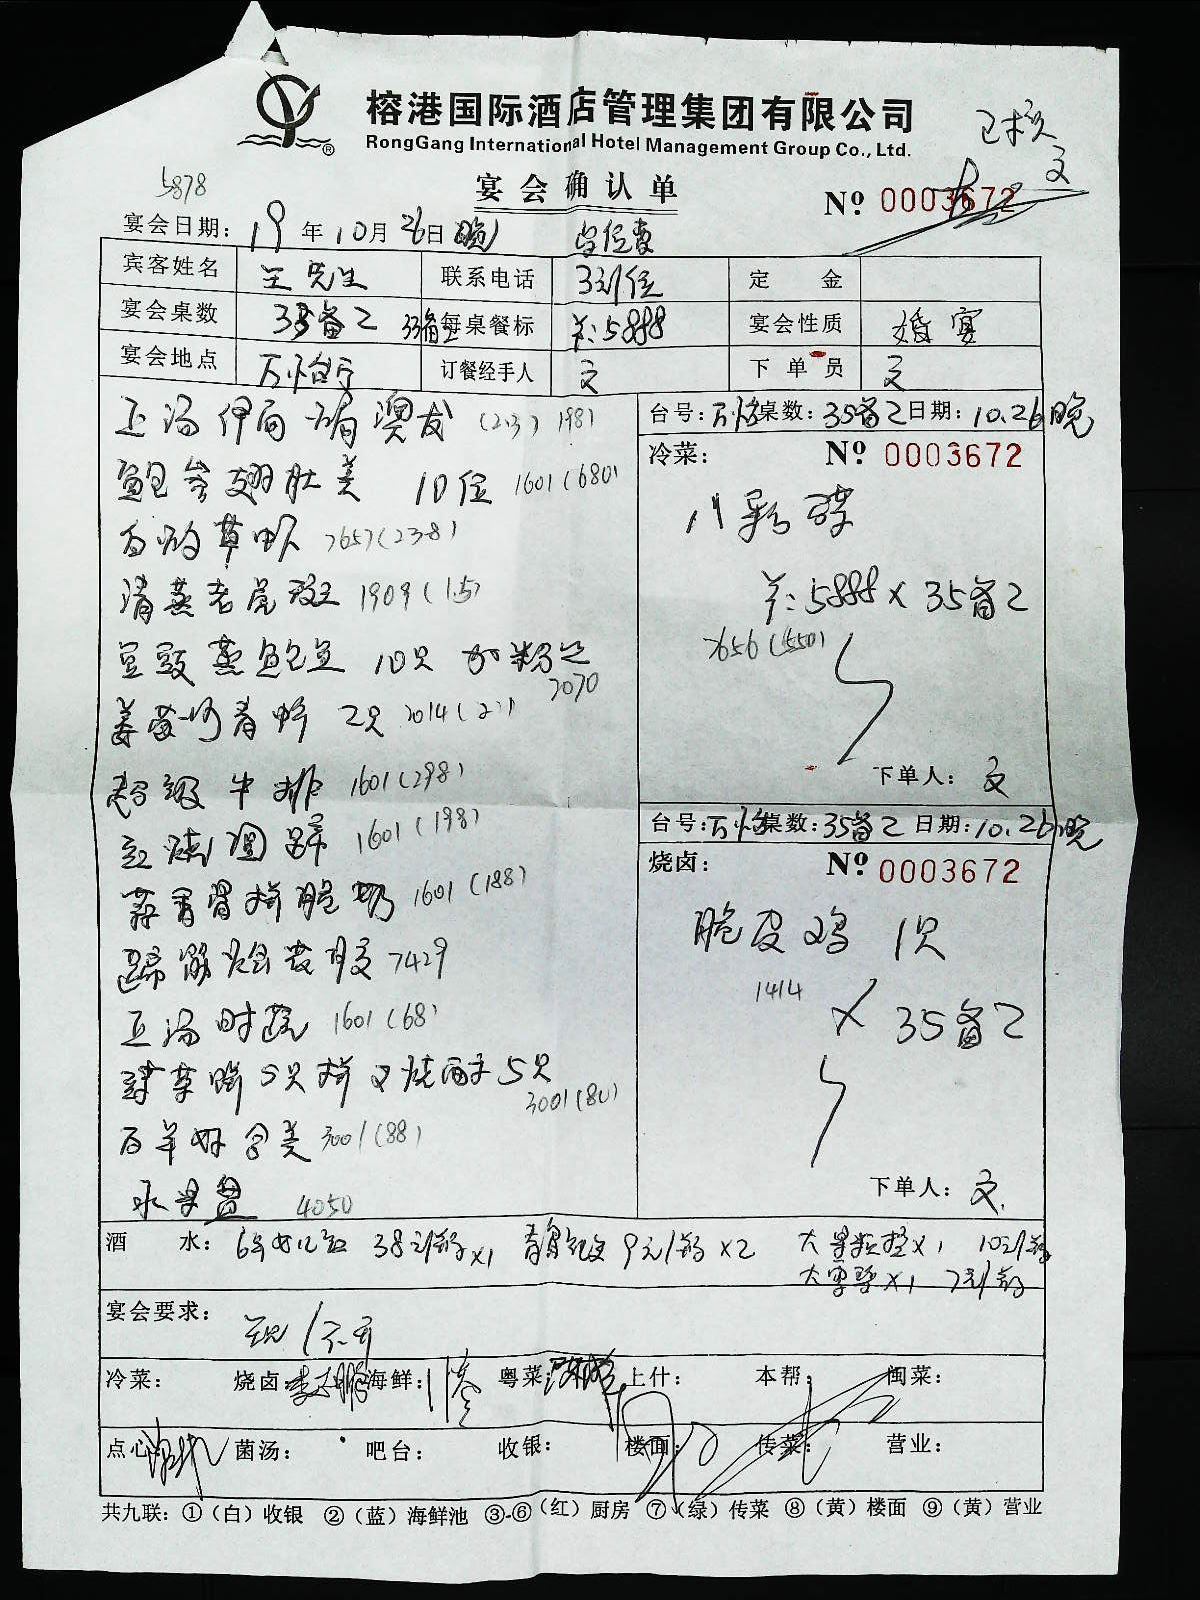 榕港国际酒店管理集团有限公司
RongGang International Hotel Management Group Co., Ltd.
已核
文
5878
宴会确认单
Nº 0003672
宴会日期: 19年10月26日晚
宾客姓名 王先生 联系电话 3元/位 定金
宴会桌数 35备2 33备2 每桌餐标 羊:5888 宴会性质 婚宴
宴会地点 订餐经手人 文 下单员 文
上汤伊面焗澳龙 (2.3) 1981
鲍参翅肚羹 10位 1601(680)
白灼草虾 7657(238)
清蒸老虎斑 1909(1.5)
豆豉蒸鲍鱼 10只 加粉丝
7070
姜葱炒青蟹 2只 2014(2)
超级牛排 1601(298)
红烧圆蹄 1601(198)
蒜香骨拼脆奶 1601(188)
蹄筋烩 7429
上汤时蔬 1601(68)
5只拼叉烧酥5只
3001(80)
百年好合羹 3001(88)
水果盘 4050
台号: 桌数:35备2 日期:10.26晚
冷菜: Nº 0003672
八彩碟
羊:5888×35备2
7656(550)
下单人: 文
台号: 桌数:35备2 日期:10.26晚
烧卤: Nº 0003672
脆皮鸡 1只
1414
× 35备2
下单人: 文
酒水: 6年女儿红 38元/瓶×1 9元/瓶×2 大果粒橙×1 10元/瓶
大雪碧×1 7元/瓶
宴会要求:
冷菜: 烧卤: 海鲜: 粤菜: 上什: 本帮: 闽菜:
点心: 菌汤: 吧台: 收银: 楼面: 传菜: 营业:
共九联:①(白)收银 ②(蓝)海鲜池 ③-⑥(红)厨房 ⑦(绿)传菜 ⑧(黄)楼面 ⑨(黄)营业